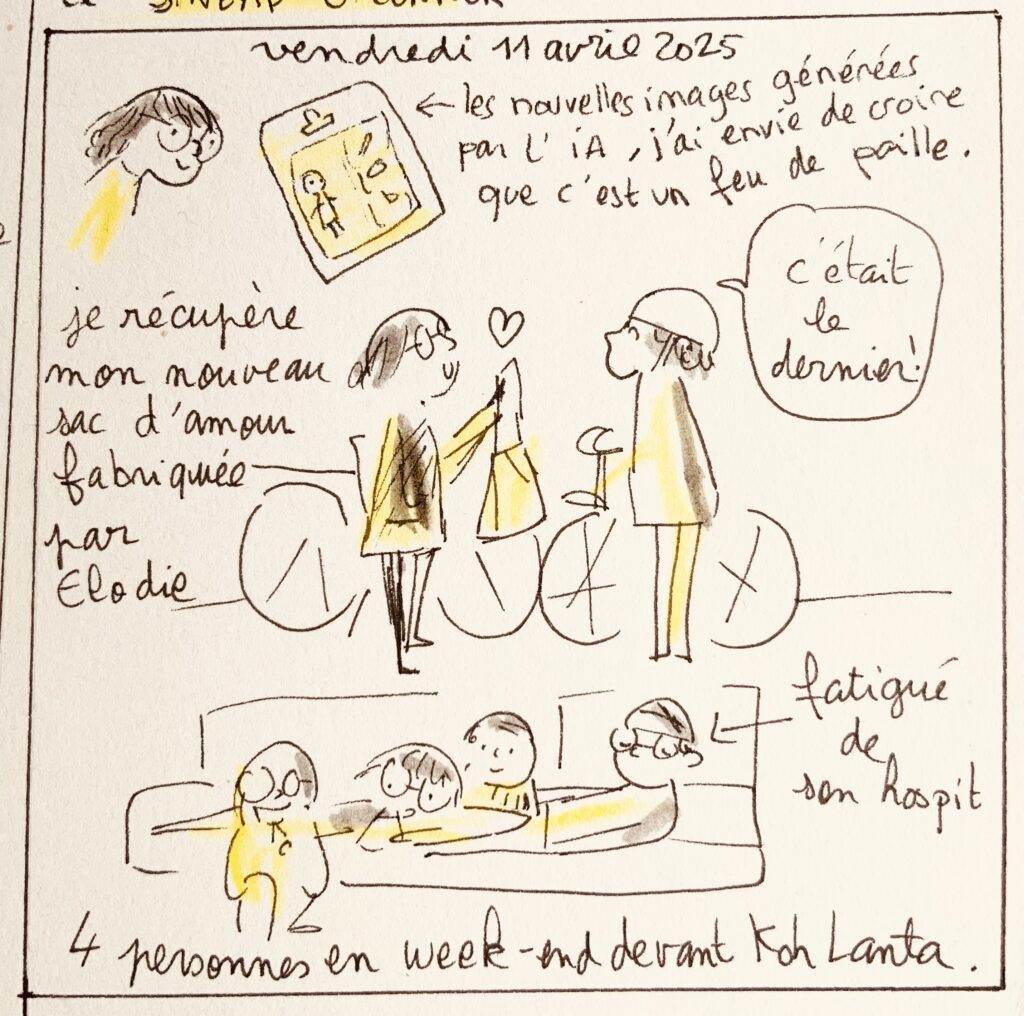 vendredi 11 avril 2025
← les nouvelles images générées
par l'iA, j'ai envie de croire
que c'est un feu de paille.
c'était
le
dernier!
je récupère
mon nouveau
sac d'amour
fabriquée
par
Elodie
fatigué
de
son hospit
4 personnes en week-end devant Koh Lanta.